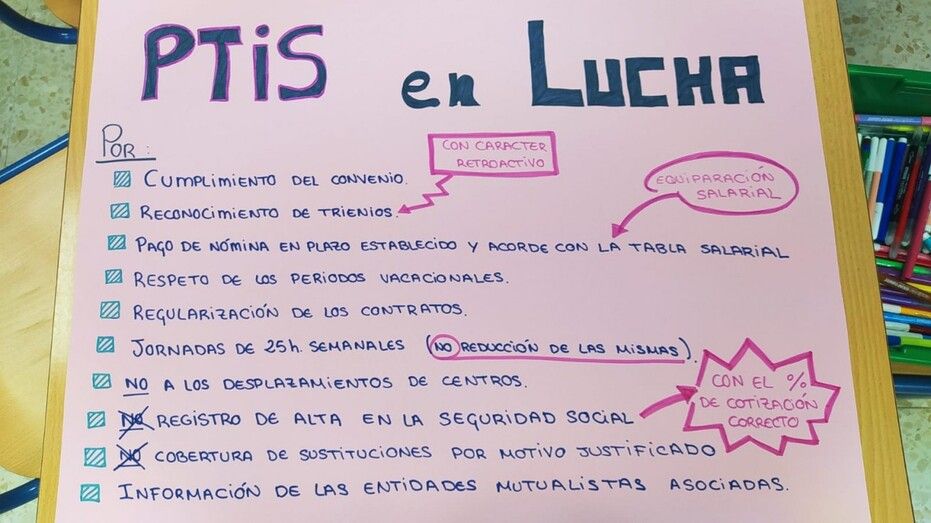 PTiS en LUCHA
POR:
CON CARACTER
RETROACTIVO
CUMPLIMIENTO DEL CONVENIO.
EQUIPARACIÓN
SALARIAL
RECONOCIMIENTO DE TRIENIOS.
PAGO DE NÓMINA EN PLAZO ESTABLECIDO Y ACORDE CON LA TABLA SALARIAL
RESPETO DE LOS PERIODOS VACACIONALES.
REGULARIZACIÓN DE LOS CONTRATOS.
JORNADAS DE 25h. SEMANALES (NO REDUCCIÓN DE LAS MISMAS).
NO A LOS DESPLAZAMIENTOS DE CENTROS.
CON EL %
DE COTIZACIÓN
CORRECTO
NO REGISTRO DE ALTA EN LA SEGURIDAD SOCIAL
NO COBERTURA DE SUSTITUCIONES POR MOTIVO JUSTIFICADO
INFORMACIÓN DE LAS ENTIDADES MUTUALISTAS ASOCIADAS.